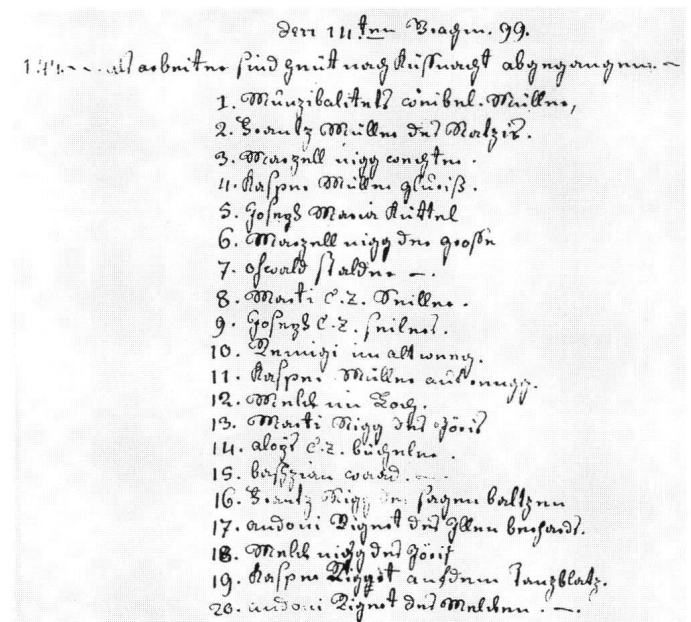 den 14ten Brachm. 99.
als arbeiter sind heüt nach Küssnacht abgegangen. –
1. Munzibalitets weibel. Müller,
2. Frantz Müller des Natzis.
3. Marzell nigg wechter.
4. Kasper Müller
5. Joseph Maria Küttel
6. Marzell nigg der grosse
7. oswald stalder –.
8. Marti C. Z. Seiller.
9. Joseph C. Z. seilers.
10. Remigi im altweeg.
11. Kasper Müller auf rugg.
12. Melch im Loch.
13. Marti Nigg des Jöris
14. aloÿs C. Z. bücheler.
15. baschzian waad. –
16. Frantz Nigg der sagen baltzen
17. andoni Rigert des
18. Melch nigg des Jöris
19. Kasper Riggert auf dem Tanzblatz.
20. andoni Rigert des Melchen. –.